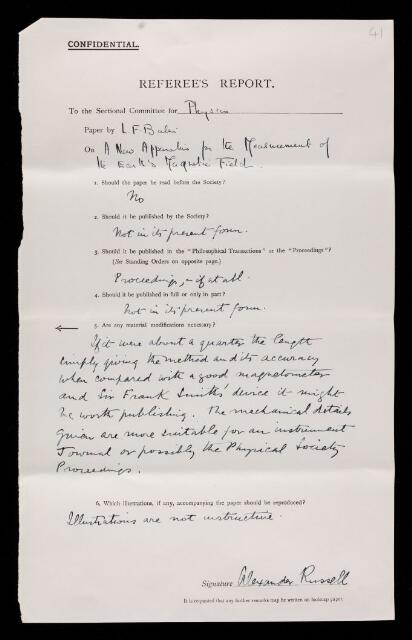 41
CONFIDENTIAL.
REFEREE'S REPORT.
To the Sectional Committee for Physics
Paper by L. F. Bates
On A New Apparatus for the Measurement of
the Earth's Magnetic Field.
1. Should the paper be read before the Society?
No
2. Should it be published by the Society?
Not in its present form.
3. Should it be published in the "Philosophical Transactions" or the "Proceedings"?
(See Standing Orders on opposite page.)
Proceedings, – if at all.
4. Should it be published in full or only in part?
Not in its present form.
5. Are any material modifications necessary?
If it were about a quarter the length
simply giving the method and its accuracy
when compared with a good magnetometer
and Sir Frank Smith's device it might
be worth publishing. The mechanical details
given are more suitable for an instrument
Journal or possibly the Physical Society
Proceedings.
6. Which illustrations, if any, accompanying the paper should be reproduced?
Illustrations are not instructive.
Signature Alexander Russell
It is requested that any further remarks may be written on foolscap paper.